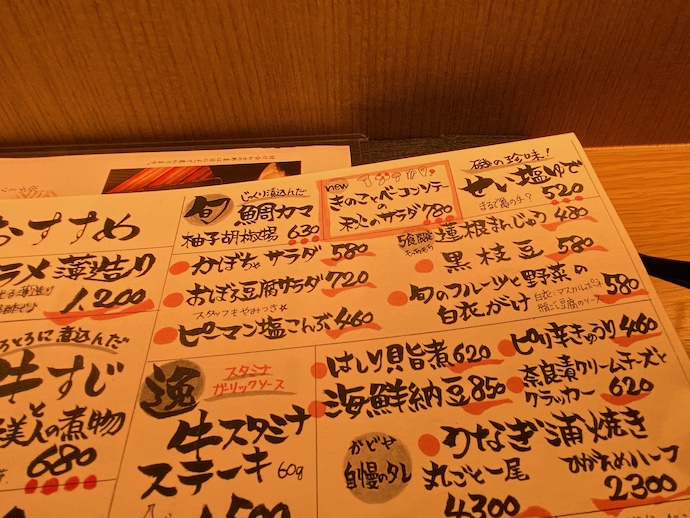 おすすめ
薄造り
1,200
とろとろに煮込んだ
牛すじ
と
美人の煮物
680
旬
じっくり煮込んだ
鯛カマ
柚子胡椒焼
630
かぼちゃサラダ 580
おぼろ豆腐サラダ 720
スタッフもやみつき☆
ピーマン塩こんぶ 460
new
きのことベーコンソテー
の
秋のサラダ 780
磯の珍味!
せい塩ゆで
まるで亀の手?
520
5食限定
蓮根まんじゅう 480
黒枝豆 580
旬のフルーツと野菜の
白衣がけ
白衣:マスカルポーネ
裏ごし豆腐のソース
580
逸
スタミナ
ガーリックソース
牛スタミナ
ステーキ 60g
1,500
はしり貝旨煮 620
海鮮納豆 850
ピリ辛きゅうり 460
奈良漬クリームチーズと
クラッカー 620
かどや
自慢のタレ
うなぎ蒲焼き
丸ごと一尾
4300
ひかえめハーフ
2300